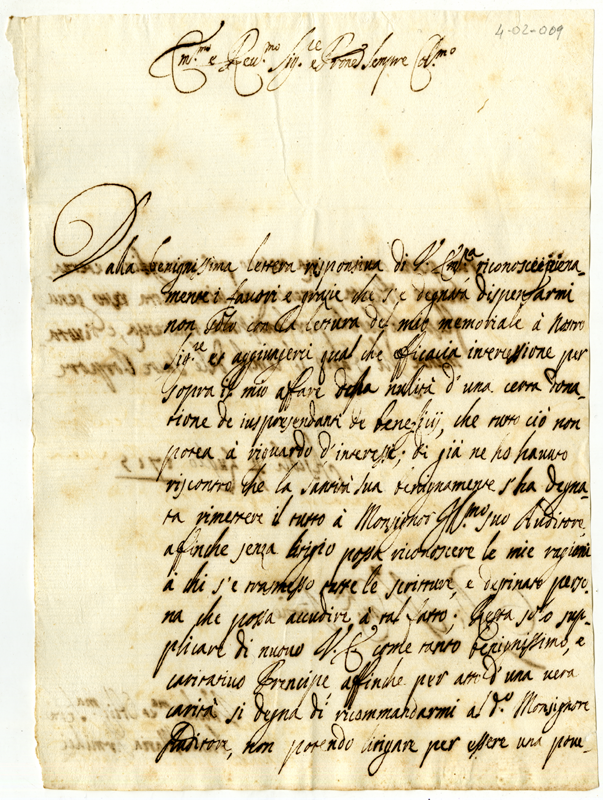 4-02-009
Em.mo e Rev.mo Sig.re e Prone sempre Col.mo
Dalla benignissima lettera responsiva di V. Em.za riconosco
mente i favori e grazie che s'è degnata dispensarmi
non solo con la lettura del mio memoriale à Nostro
Sig.re et aggiungervi qual che efficacia interessione per
sopra il mio affare della nulità d'una certa dona-
tione de iuspresendandi de beneficij, che tutto ciò non
potea à riguardo d'interesse; di già ne ho hauuto
riscontro che la Santità Sua benignamente s'ha degna-
ta rimettere il tutto à Monsignor Ill.mo suo Auditore,
affinche senza litigio possa riconoscere le mie ragioni
à chi s'è trasmesso tutte le scritture, e destinato perso-
na che possa accudire à tal fatto; Resta solo sup-
plicare di nuovo V. E. come tanto benignissimo, e
caritativo Prencipe affinche per atti d'una vera
carità si degna di recommandarmi al d.o Monsignore
Auditore, non potendo litigare per essere una pove-